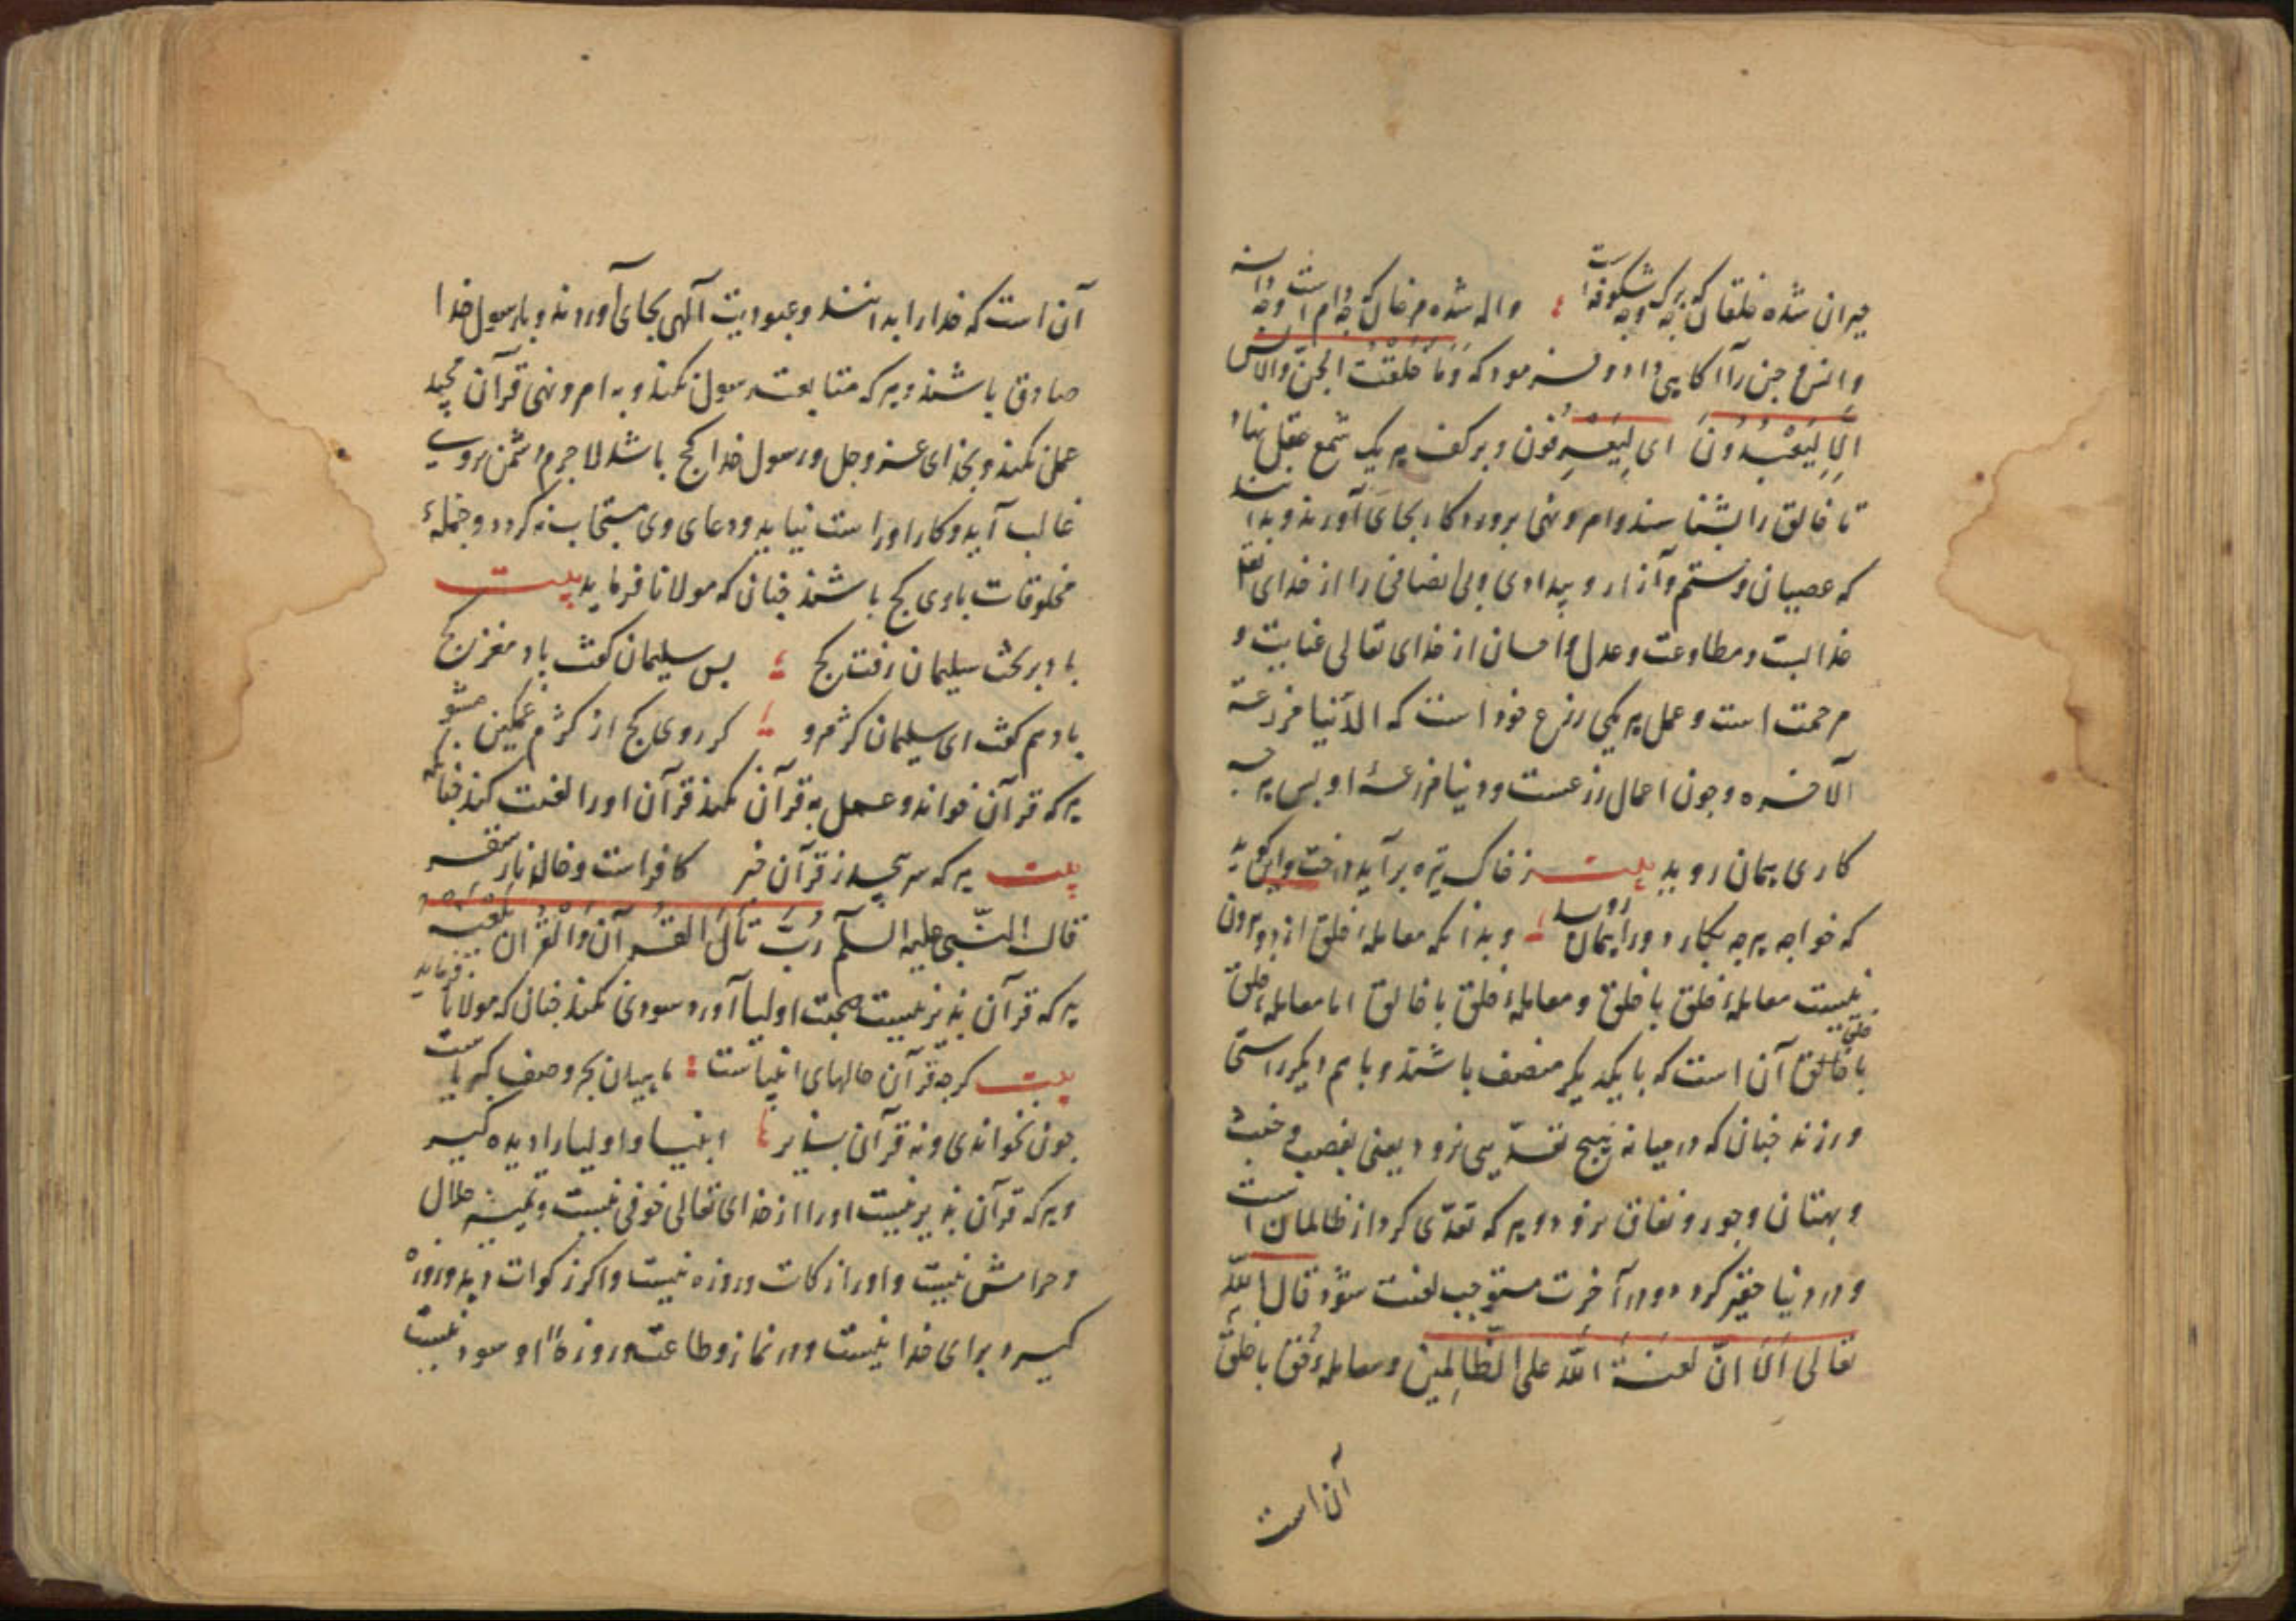 حیران شده خلقان که چه برک و چه شکوفه است ؛ واله شده مرغان که چه دام است و چه دانه
و انس و جن را آکاهی داد و فرمود که وَمَا خَلَقْتُ الجِنَّ والانس
اِلَّا لِیَعْبُدُونَ ای لِیَعْرِفون و بر کف هر یک شمع عقل نهاد
تا خالق را بشناسند و امر و نهی پروردکار بجای آورند و بدانند
که عصیان و ستم و آزار و بیدادی و بی انصافی را از خدای تعالی
عذابست و مطاوعت و عدل و احسان از خدای تعالی عنایت و
مرحمت است و عمل هر یکی زرع خود است که الدّنیا مزرعة
الآخره و چون اعمال زرعست و دنیا مزرعهٔ او پس هر چه
کاری همان روید بیت ز خاک تیره بر آید درخت و این کوید
که خواجه هر چه بکاری ورا همان روید ؛ و بدانکه معاملهٔ خلق از دو بیرون
نیست معاملهٔ خلق با خلق و معاملهٔ خلق با خالق اما معاملهٔ خلق
با خلق آن است که با یکدیکر منصف باشند و با هم دیکر راستی
ورزند چنان که در میانه هیچ تعدّیی نرود یعنی بغصب و خبث
و بهتان و جور و نفاق نرود و هر که تعدّی کرد از ظالمان است
و در دنیا حقیر کردد و در آخرت مستوجب لعنت شود قال الله
تعالی اَلَا انّ لعنة الله علی الظّالمین و معاملهٔ خلق با خالق
آن است
آن است که خدا را بدانند و عبودیت الهی بجای آورند و با رسول خدا
صادق باشند و هر که متابعت رسول نکند و به امر و نهی قرآن مجید
عمل نکند و بخدای عز و جل و رسول خدا کج باشد لاجرم دشمن بر وی
غالب آید و کار او راست نیاید و دعای وی مستجاب نکردد و جملهٔ
مخلوقات با وی کج باشند چنان که مولانا فرماید بیت
باد بر تخت سلیمان رفت کج ؛ پس سلیمان کفت بادا مغژ کج
باد هم کفت ای سلیمان کژ مرو ؛ کر روی کج از کژم غمکین مشو
هر که قرآن خواند و عمل به قرآن نکند قرآن او را لعنت کند چنانکه
بیت هر که سر پیچد ز قرآن خبر کافر است و خالد نار سقر
قال النّبی علیه السلام رُبَّ تَالِ القُرآن وَالْقُرآن یلعنه
هر که قرآن پذیر نیست صحبت اولیا آورد سودی نکند چنان که مولانا میفرماید
بیت کرچه قرآن حالهای انبیاست ؛ ماهیان بحر وصف کبریاست
چون نخواندی و نه قرآن پذیر ؛ انبیا و اولیا را دیده کیر
و هر که قرآن پذیر نیست او را از خدای تعالی خوفی نیست و تمییز حلال
و حرامش نیست و او را زکات و روزه نیست و اکر زکوات دهد و روزه
کیرد برای خدا نیست و در نماز و طاعت و روزهٔ او سود نیست